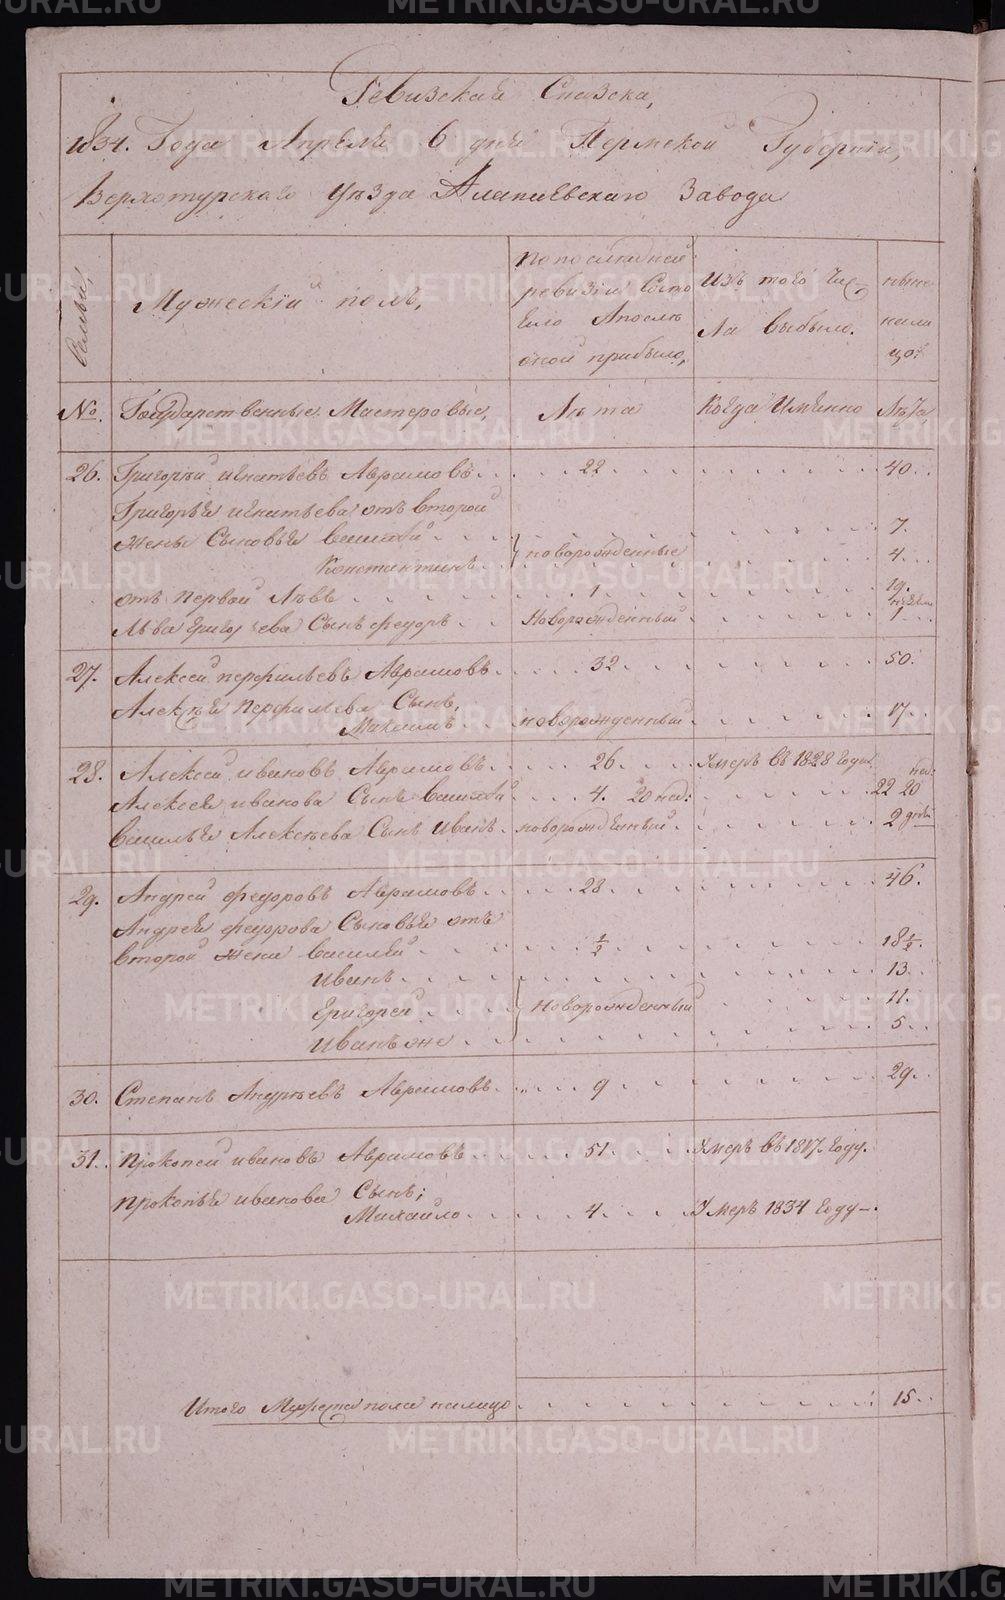 Ревизская Сказка,
1834. Года Апреля 6 дня Пермской Губернии,
Верхотурскаго Уезда Алапаевскаго Завода
Семьи,
Мужескій полъ,
По последней
ревизіи Состо
яло Апосле
оной прибыло,
Изъ того Чис
ла выбыло.
ныне
нали
цо
№.
Государственные Мастеровые,
Лета
Когда Имянно
Лета
26. Григорей игнатьевъ Аврамовъ . . 22 . . 40.
Григорья игнатьева отъ второй
жены Сыновья Василей . . 7.
новорожденные
Константинъ . . 4.
отъ первой Левъ . . 1 . . 19.
Льва Григорьева Сынъ федоръ . . Новорожденный . . 1
27. Алексей перфильевъ Аврамовъ . . 32 . . 50.
Алексея перфильева Сынъ,
Максимъ . . новорожденный . . 17.
28. Алексей ивановъ Аврамовъ . . 26 . . Умеръ въ 1828 Году
Алексея иванова Сынъ Василей . . 4. 20 нед: . . 22 20 нед:
Василья Алексеева Сынъ Иванъ . новорожденный . . 2 дней
29. Андрей федоровъ Аврамовъ . . 28 . . 46.
Андрея федорова Сыновья отъ
второй жены Василей . . 1/2 . . 18 1/2.
Иванъ . . 13.
Григорей . . Новорожденный . . 11.
Иванъ же . . 5.
30. Степанъ Андреевъ Аврамовъ . . 9 . . 29.
31. Прокопей ивановъ Аврамовъ . . 51 . . Умеръ въ 1817. Году.
Прокопья иванова Сынъ;
Михайло . . 4. . . Умеръ 1834 Году.
Итого Мужеска пола налицо . . 15.
METRIKI.GASO-URAL.RU